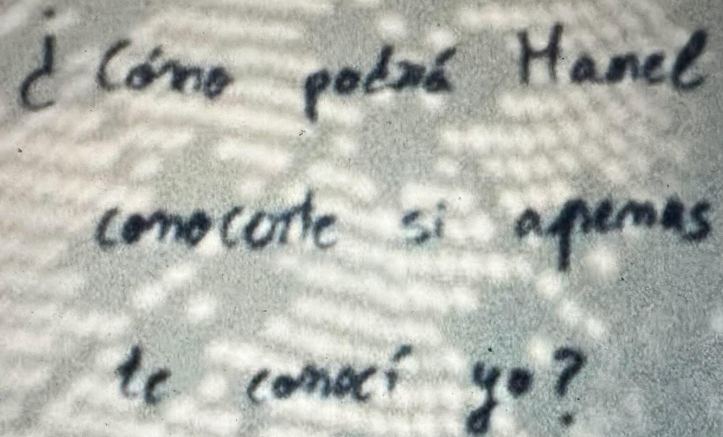 ¿Cómo podrá Hamel
conocerte si apenas
te conocí yo?